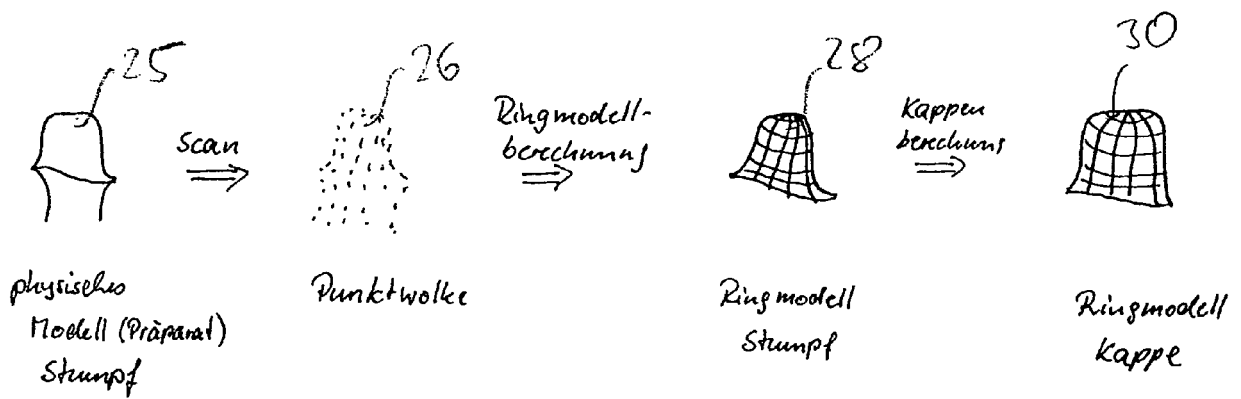 25
26
28
30
Scan
Ringmodell-
berechnung
Kappen
berechnung
physisches
Modell (Präparat)
Stumpf
Punktwolke
Ringmodell
Stumpf
Ringmodell
Kappe